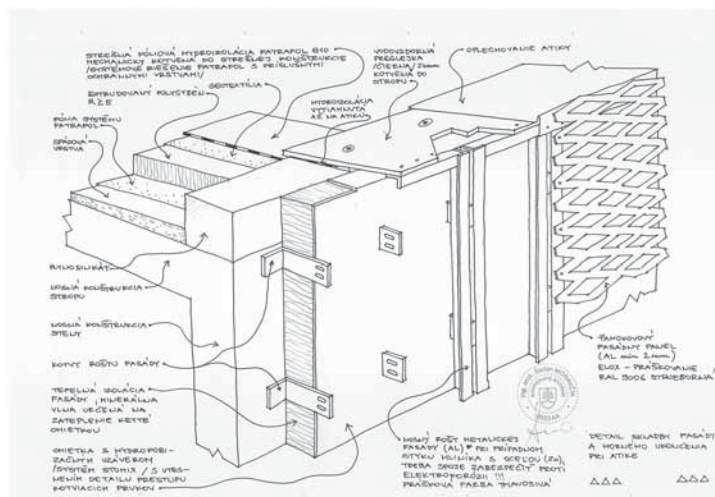 STREŠNÁ FÓLIOVÁ HYDROIZOLÁCIA FATRAFOL 810
MECHANICKY KOTVENÁ DO STREŠNEJ KONŠTRUKCIE
/SYSTÉMOVÉ RIEŠENIE FATRAFOL S PRÍSLUŠNÝMI
OCHRANNÝMI VRSTVAMI/
EXTRUDOVANÝ POLYSTYRÉN
GEOTEXTÍLIA
FÓLIA SYSTÉMU
FATRAFOL
SPÁDOVÁ
VRSTVA
HYDROIZOLÁCIA
VYTIAHNUTÁ
AŽ NA ATIKU
VODOVZDORNÁ
PREGLEJKA
/ČIERNA/
KOTVENÁ DO
STROPU
OPLECHOVANIE ATIKY
NOSNÁ KONŠTRUKCIA
STROPU
NOSNÁ KONŠTRUKCIA
STENY
KOTVY ROŠTU FASÁDY
TEPELNÁ IZOLÁCIA
FASÁDY, MINERÁLNA
VLNA URČENÁ NA
ZATEPLENIE
OMIETKOU
OMIETKA S HYDROFOBI-
ZAČNÝM UZÁVEROM
/SYSTÉM STOMIX/ S VYRIE-
ŠENÍM DETAILU PRESTUPU
KOTVIACICH PRVKOV
NOSNÝ ROŠT METALICKEJ
FASÁDY (AL) * PRI PRÍPADNOM
STYKU HLINÍKA S OCEĽOU (Zn),
TREBA SPOJE ZABEZPEČIŤ PROTI
ELEKTROKORÓZII !!!
PRÁŠKOVÁ FARBA TMAVOSIVÁ
ŤAHOKOVOVÝ
FASÁDNY PANEL
(AL min 2mm)
ELOX - PRÁŠKOVANIE
RAL 9006 STRIEBORNÁ
DETAIL SKLADBY FASÁDY
A HORNÉHO UKONČENIA
PRI ATIKE